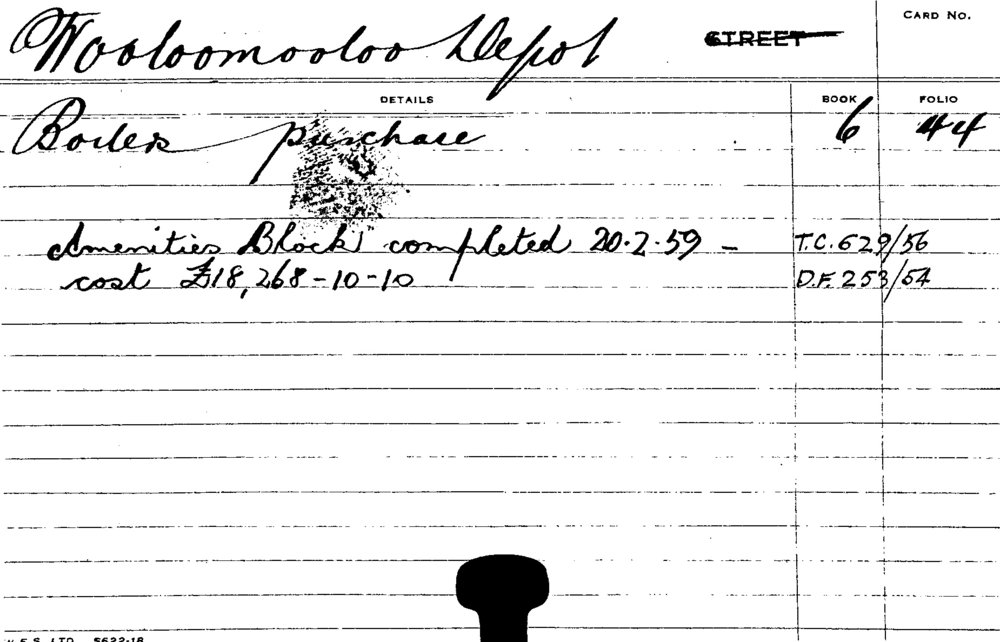 Wooloomooloo Depot STREET CARD No.
DETAILS BOOK FOLIO
Boiler purchase 6 44
Amenities Block completed 20.2.59 - T.C. 629/56
cost £18,268-10-10 D.F. 253/54
LTD. S622-18